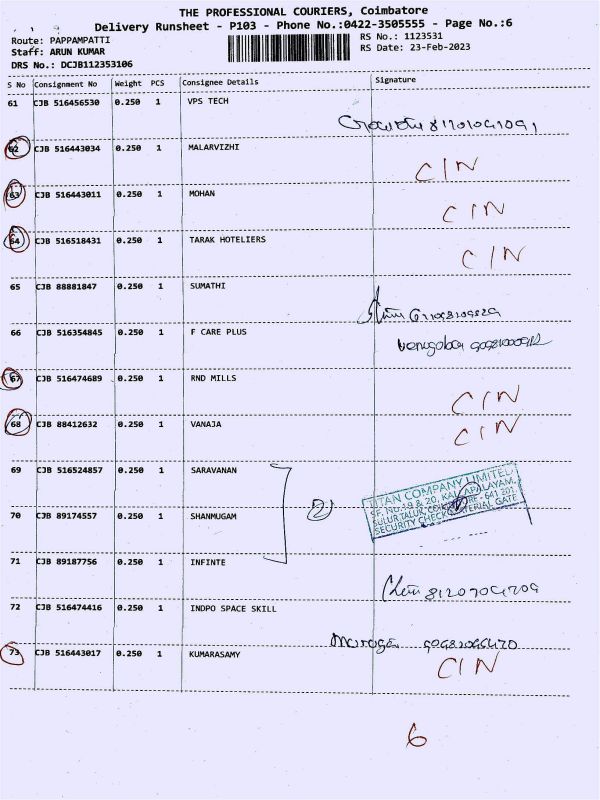 THE PROFESSIONAL COURIERS, Coimbatore
Delivery Runsheet - P103 - Phone No.:0422-3505555 - Page No.:6
Route: PAPPAMPATTI
Staff: ARUN KUMAR
DRS No.: DCJB112353106
RS No.: 1123531
RS Date: 23-Feb-2023
S No Consignment No Weight PCS Consignee Details Signature
61 CJB 516456530 0.250 1 VPS TECH
62 CJB 516443034 0.250 1 MALARVIZHI CIN
63 CJB 516443011 0.250 1 MOHAN CIN
64 CJB 516518431 0.250 1 TARAK HOTELIERS CIN
65 CJB 88881847 0.250 1 SUMATHI
66 CJB 516354845 0.250 1 F CARE PLUS
67 CJB 516474689 0.250 1 RND MILLS CIN
68 CJB 88412632 0.250 1 VANAJA CIN
69 CJB 516524857 0.250 1 SARAVANAN
70 CJB 89174557 0.250 1 SHANMUGAM
TITAN COMPANY LIMITED
SF. NO.19 & 20,
SULUR TALUK, - 641 201
SECURITY CHECK MATERIAL GATE
71 CJB 89187756 0.250 1 INFINTE
72 CJB 516474416 0.250 1 INDPO SPACE SKILL
73 CJB 516443017 0.250 1 KUMARASAMY CIN
6